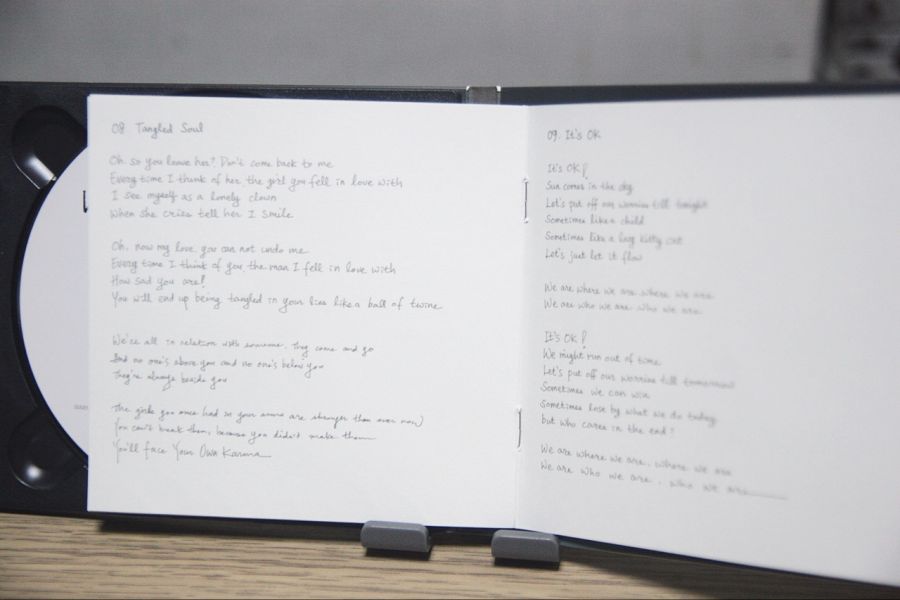 08 Tangled Soul
Oh, so you leave her? Don't come back to me
Every time I think of her, the girl you fell in love with
I see myself as a lonely clown
When she cries tell her I smile
Oh, now my love, you can not undo me
Every time I think of you the man I fell in love with
How sad you are!
You will end up being tangled in your lies like a ball of twine
We're all in relation with someone. They come and go
And no one's above you and no one's below you
They're always beside you
The girls you once had in your arms are stronger than ever now
You can't break them, because you didn't make them
You'll face Your Own Karma
09. It's OK
It's OK!
Sun comes in the day
Let's put off our worries till tonight
Sometimes like a child
Sometimes like a lazy kitty cat
Let's just let it flow
We are where we are, where we are
We are who we are, who we are
It's OK!
We might run out of time
Let's put off our worries till tomorrow
Sometimes we can win
Sometimes lose by what we do today
but who cares in the end?
We are where we are, where we are
We are who we are, who we are